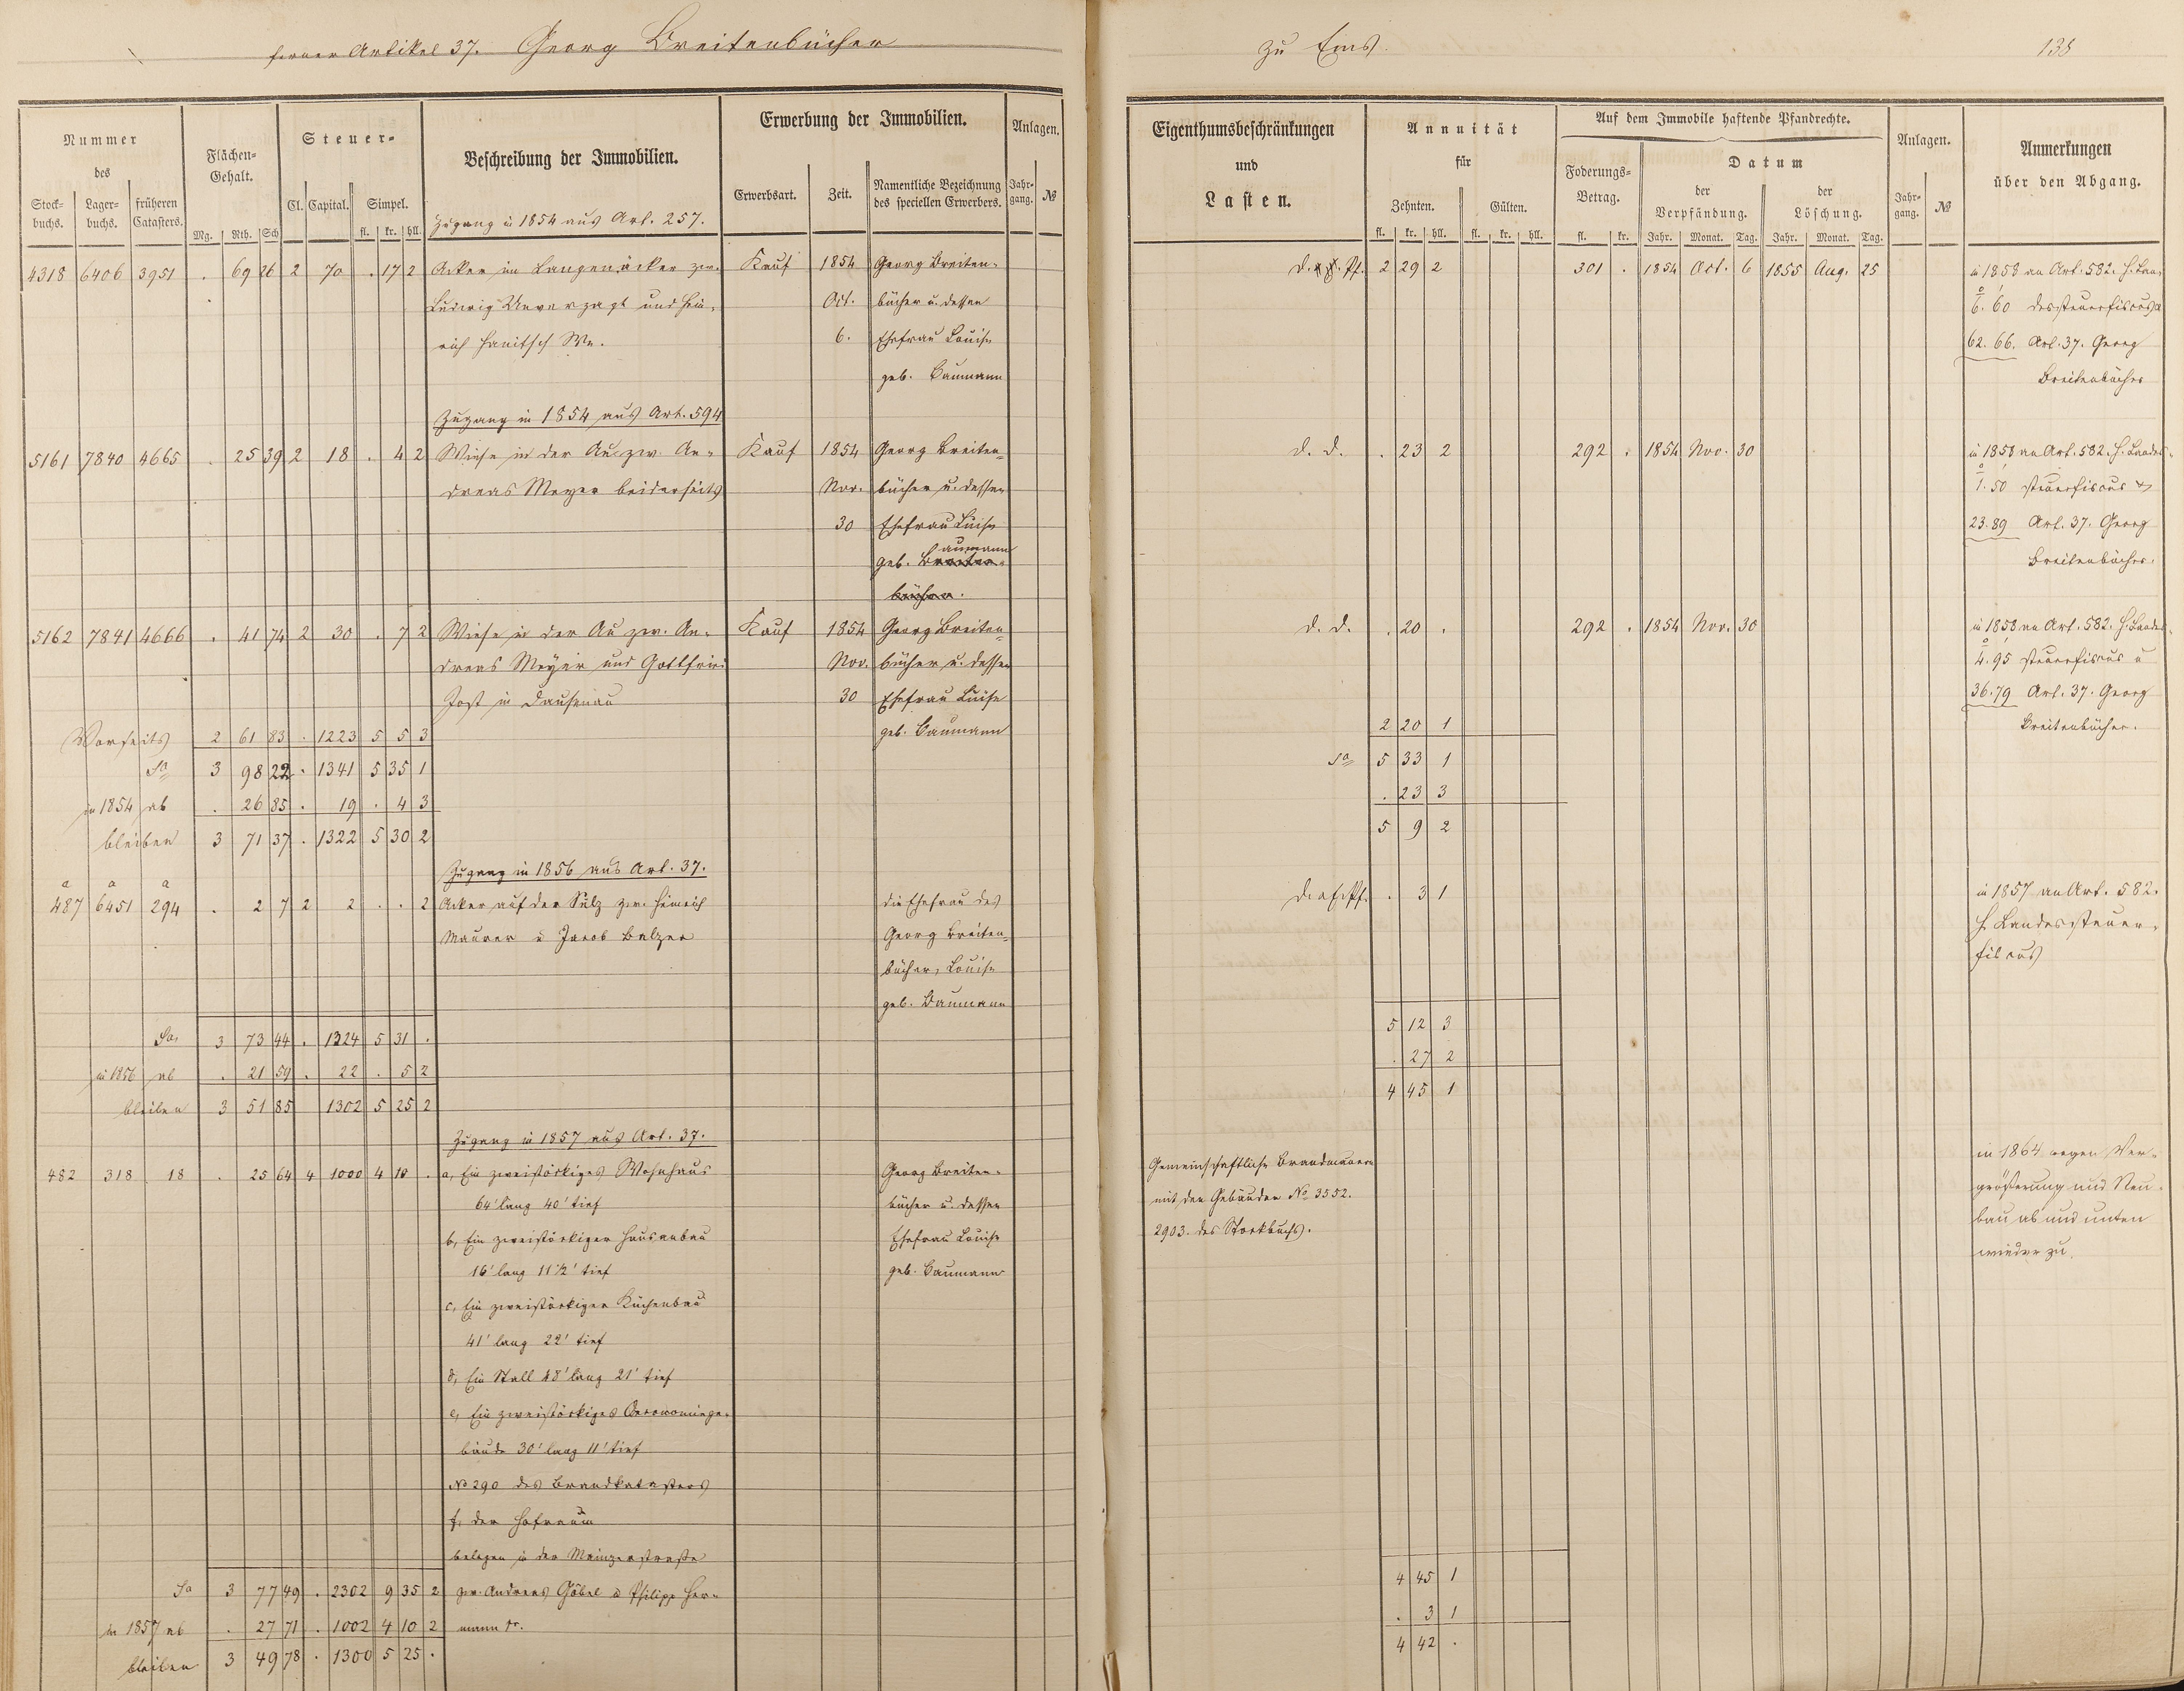 ferner Artikel 37. Georg Breitenbücher
zu Ems.
138
Nummer
des
Stock-
buchs.
Lager-
buchs.
früheren
Catasters.
Flächen-
Gehalt.
Mg. Rth. Sch
Steuer-
Cl. Capital. Simpel.
fl. kr. hll.
Beschreibung der Immobilien.
Erwerbung der Immobilien.
Erwerbsart. Zeit.
Namentliche Bezeichnung
des speciellen Erwerbers.
Anlagen.
Jahr-
gang. №
Eigenthumsbeschränkungen
und
Lasten.
Annuität
für
Zehnten. Gülten.
fl. kr. hll. fl. kr. hll.
Auf dem Immobile haftende Pfandrechte.
Foderungs-
Betrag.
fl. kr.
Datum
der
Verpfändung.
Jahr. Monat. Tag.
der
Löschung.
Jahr. Monat. Tag.
Anlagen.
Jahr-
gang. №
Anmerkungen
über den Abgang.
Zugang in 1854 aus Art. 257.
4318 6406 3951 . 69 26 2 70 . 17 2 Acker im Langenäcker zw. Kauf 1854 Georg Breiten- 2 29 2 301 . 1854 Oct. 6 1855 Aug. 25 in 1858 an Art. 582. H. Lan-
Ludwig Unverzagt und Hein- Oct. bücher u. dessen 6. 60 dessteuerfiscus u
rich Hanitsch We. 6. Ehefrau Louise 62. 66. Art. 37. Georg
geb. Baumann Breitenbücher
Zugang in 1854 aus Art. 594
5161 7840 4665 . 25 39 2 18 . 4 2 Wiese in der Au zw. An- Kauf 1854 Georg Breiten- d. d. . 23 2 292 . 1854 Nov. 30 in 1858 an Art. 582. H. Landes-
dreas Meyer beiderseits Nov. bücher u. dessen 1. 50 steuerfiscus
30 Ehefrau Luise 23. 89 Art. 37. Georg
aumann
geb. Breiten- Breitenbücher.
bücher.
5162 7841 4666 . 41 74 2 30 . 7 2 Wiese in der Au zw. An- Kauf 1854 Georg Breiten- d. d. . 20 . 292 . 1854 Nov. 30 in 1858 an Art. 582. H. Landes-
dreas Meyer und Gottfried Nov. bücher u. dessen 4. 95 steuerfiscus u
Jost in Dausenau 30 Ehefrau Luise 36. 79 Art. 37. Georg
Vorseits 2 61 83 . 1223 5 5 3 geb. Baumann 2 20 1 Breitenbücher.
Sa 3 98 22 . 1341 5 35 1 Sa 5 33 1
in 1854 ab . 26 85 . 19 . 4 3 . 23 3
bleiben 3 71 37 . 1322 5 30 2 5 9 2
Zugang in 1856 aus Art. 37.
a a a
487 6451 294 . 2 7 2 2 . . 2 Acker auf der Sülz zw. Heinrich die Ehefrau des . 3 1 in 1857 an Art. 582.
Maurer u Jacob Balzer Georg Breiten- H. Landessteuer-
bücher, Louise fiscus
geb. Baumann
Sa. 3 73 44 . 1324 5 31 . 5 12 3
in 1856 ab . 21 59 . 22 . 5 2 . 27 2
bleiben 3 51 85 1302 5 25 2 4 45 1
Zugang in 1857 aus Art. 37.
482 318 18 . 25 64 4 1000 4 10 . a, Ein zweistöckiges Wohnhaus Georg Breiten- Gemeinschaftliche Brandmauern in 1864 wegen Ver-
64' lang 40' tief bücher u. dessen mit den Gebäuden No 3552. größerung und Neu-
b, Ein zweistöckiger Hausanbau Ehefrau Louise 2903. des Stockbuchs. bau ab und unten
16' lang 11½' tief geb. Baumann wieder zu.
c, Ein zweistöckiger Küchenbau
41' lang 22' tief
d, Ein Stall 48' lang 21' tief
e, Ein zweistöckiges Oeconomiege-
bäude 30' lang 11' tief
No 290 des Brandkatasters
f, der Hofraum
belegen in der Mainzerstraße
Sa 3 77 49 . 2302 9 35 2 zw. Andreas Göbel u Philipp Her- 4 45 1
in 1857 ab . 27 71 . 1002 4 10 2 mann sr. . 3 1
bleiben 3 49 78 . 1300 5 25 . 4 42 .